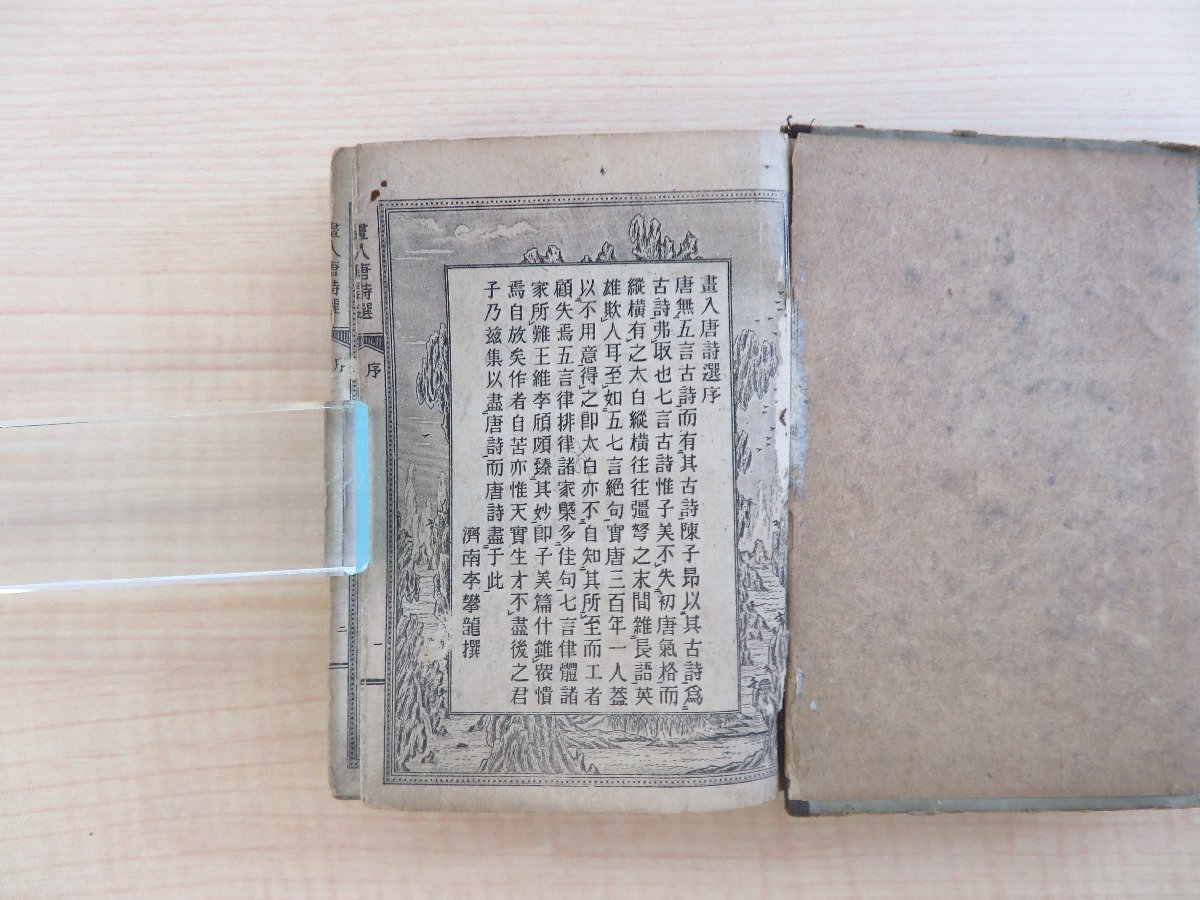 畫入唐詩選序
唐無五言古詩而有其古詩陳子昂以其古詩爲
古詩弗取也七言古詩惟子美不失初唐氣格而
縱橫有之太白縱橫往往彊弩之末間雜長語英
雄欺人耳至如五七言絕句實唐三百年一人葢
以不用意得之卽太白亦不自知其所至而工者
顧失焉五言律排律諸家槩多佳句七言律體諸
家所難王維李頎頗臻其妙卽子美篇什雖衆憒
焉自放矣作者自苦亦惟天實生才不盡後之君
子乃兹集以盡唐詩而唐詩盡于此
濟南李攀龍撰
畫入唐詩選
序
一
畫入唐詩選
序
二